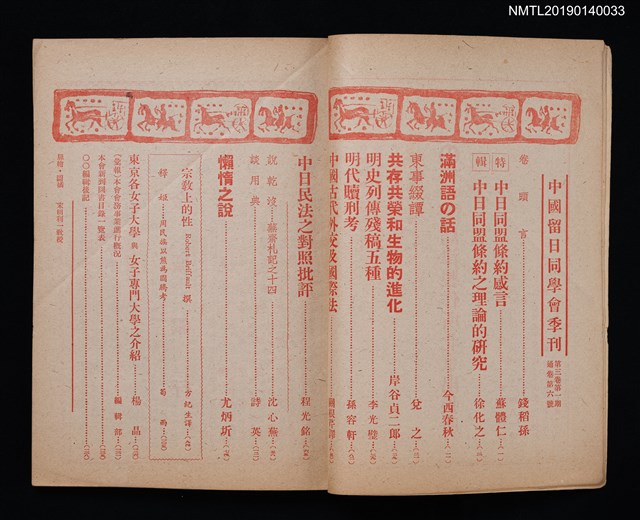 NMTL20190140033
中國留日同學會季刊
第三卷第一期
通卷第六號
卷頭言 錢稻孫
特輯
中日同盟條約感言 蘇體仁
中日同盟條約之理論的研究 徐化之
滿洲語の話 今西春秋
東事綴譚 兌之
共存共榮和生物的進化 岸谷貞二郎
明史列傳殘稿五種 李光璧
明代贖刑考 孫容軒
中國古代外交及國際法
中日民法之對照批評 程光銘
說乾沒 沈心蕪
談用典 詩英
懶惰之說 尤炳圻
宗敎上的性 Robert Briffault 撰 方紀生譯
東京各女子大學與女子專門大學之介紹 楊晶
(彙報)本會會務事業進行概況 編輯部
本會新到圖書目錄一覽表
〇〇編輯後記